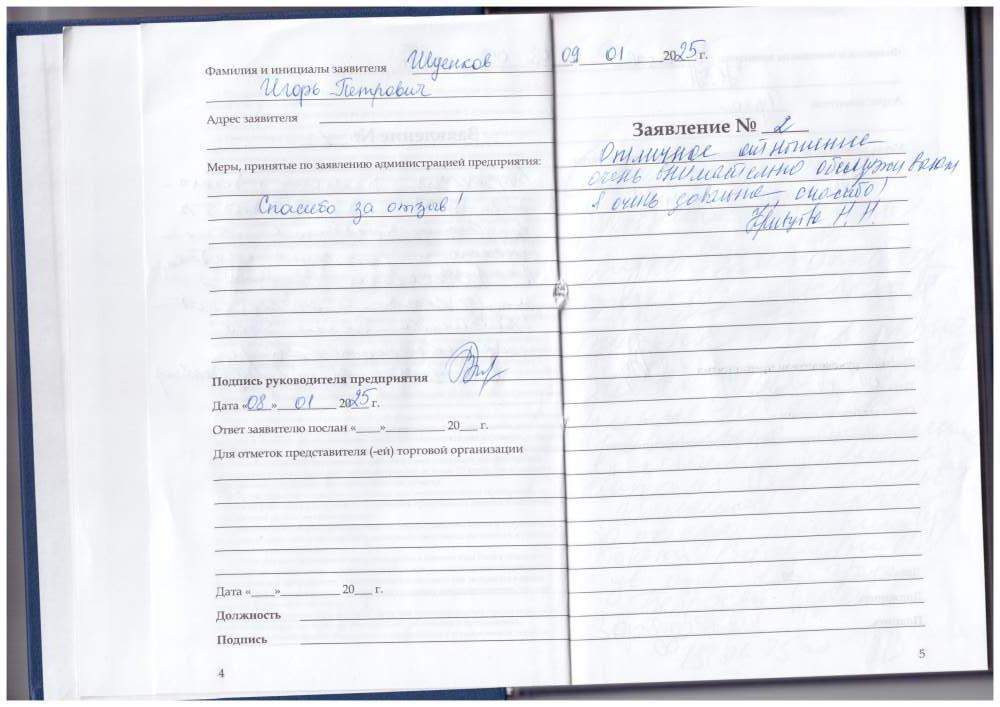 Фамилия и инициалы заявителя Щуенков
Игорь Петрович
Адрес заявителя
Меры, принятые по заявлению администрацией предприятия:
Спасибо за отзыв!
Подпись руководителя предприятия
Дата «08» 01 2025 г.
Ответ заявителю послан «____»__________ 20___ г.
Для отметок представителя (-ей) торговой организации
Дата «____»__________ 20___ г.
Должность
Подпись
4
09 01 2025 г.
Заявление № 2
Отличное отношение
очень внимательно обслуживают
Я очень довольна спасибо!
Н. Н.
5